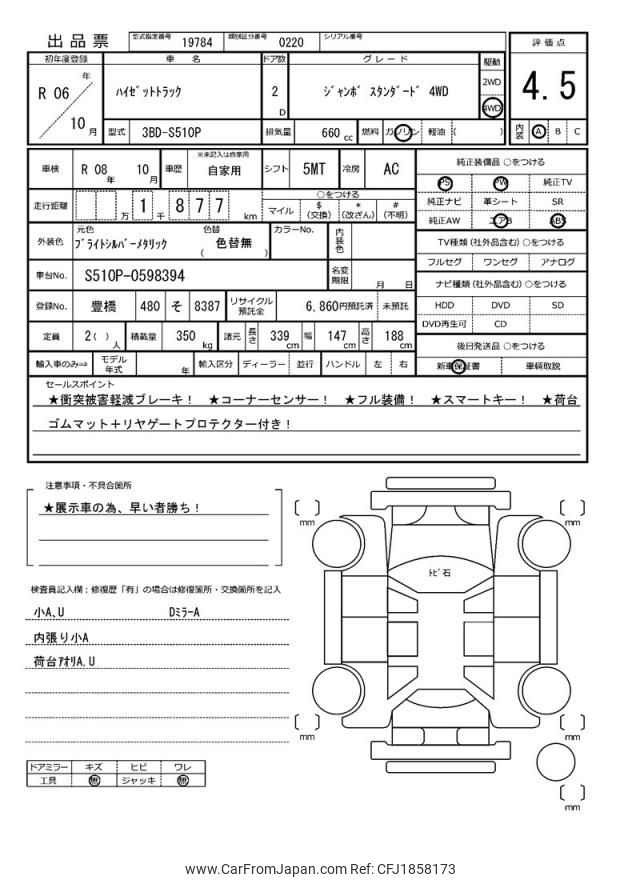 出品票 型式指定番号 19784 類別区分番号 0220 シリアル番号
初年度登録 車名 ドア数 グレード 駆動 評価点
R 06 年 10 月 ハイゼットトラック 2 D ジャンボ スタンダード 4WD 2WD 4WD 4.5
型式 3BD-S510P 排気量 660 cc 燃料 ガソリン 軽油 ( ) 内装 A B C
車検 R 08 年 10 月 車歴 ※未記入は自家用 自家用 シフト 5MT 冷房 AC
走行距離 万 1 千 8 7 7 km ○をつける マイル $ (交換) * (改ざん) # (不明)
外装色 元色 ブライトシルバーメタリック 色替 ( 色替無 ) カラーNo. 内装色
車台No. S510P-0598394 名変期限 月 日
登録No. 豊橋 480 そ 8387 リサイクル預託金 6,860円預託済 未預託
定員 2( ) 人 積載量 350 kg 諸元 長さ 339 cm 幅 147 cm 高さ 188 cm
輸入車のみ⇒ モデル年式 年 輸入区分 ディーラー 並行 ハンドル 左 右
純正装備品 ○をつける
PS PW 純正TV
純正ナビ 革シート SR
純正AW エアB ABS
TV種類 (社外品含む) ○をつける
フルセグ ワンセグ アナログ
ナビ種類 (社外品含む) ○をつける
HDD DVD SD
DVD再生可 CD
後日発送品 ○をつける
新車保証書 車輌取説
セールスポイント
★衝突被害軽減ブレーキ! ★コーナーセンサー! ★フル装備! ★スマートキー! ★荷台
ゴムマット+リヤゲートプロテクター付き!
注意事項・不具合箇所
★展示車の為、早い者勝ち!
検査員記入欄:修復歴「有」の場合は修復箇所・交換箇所を記入
小A、U Dミラ-A
内張り小A
荷台アオリA、U
ドアミラー キズ ヒビ ワレ
工具 無 ジャッキ 無
[ ] mm
[ ] mm
トビ石
[ ] mm
[ ] mm
[ ] mm
www.CarFromJapan.com Ref: CFJ1858173